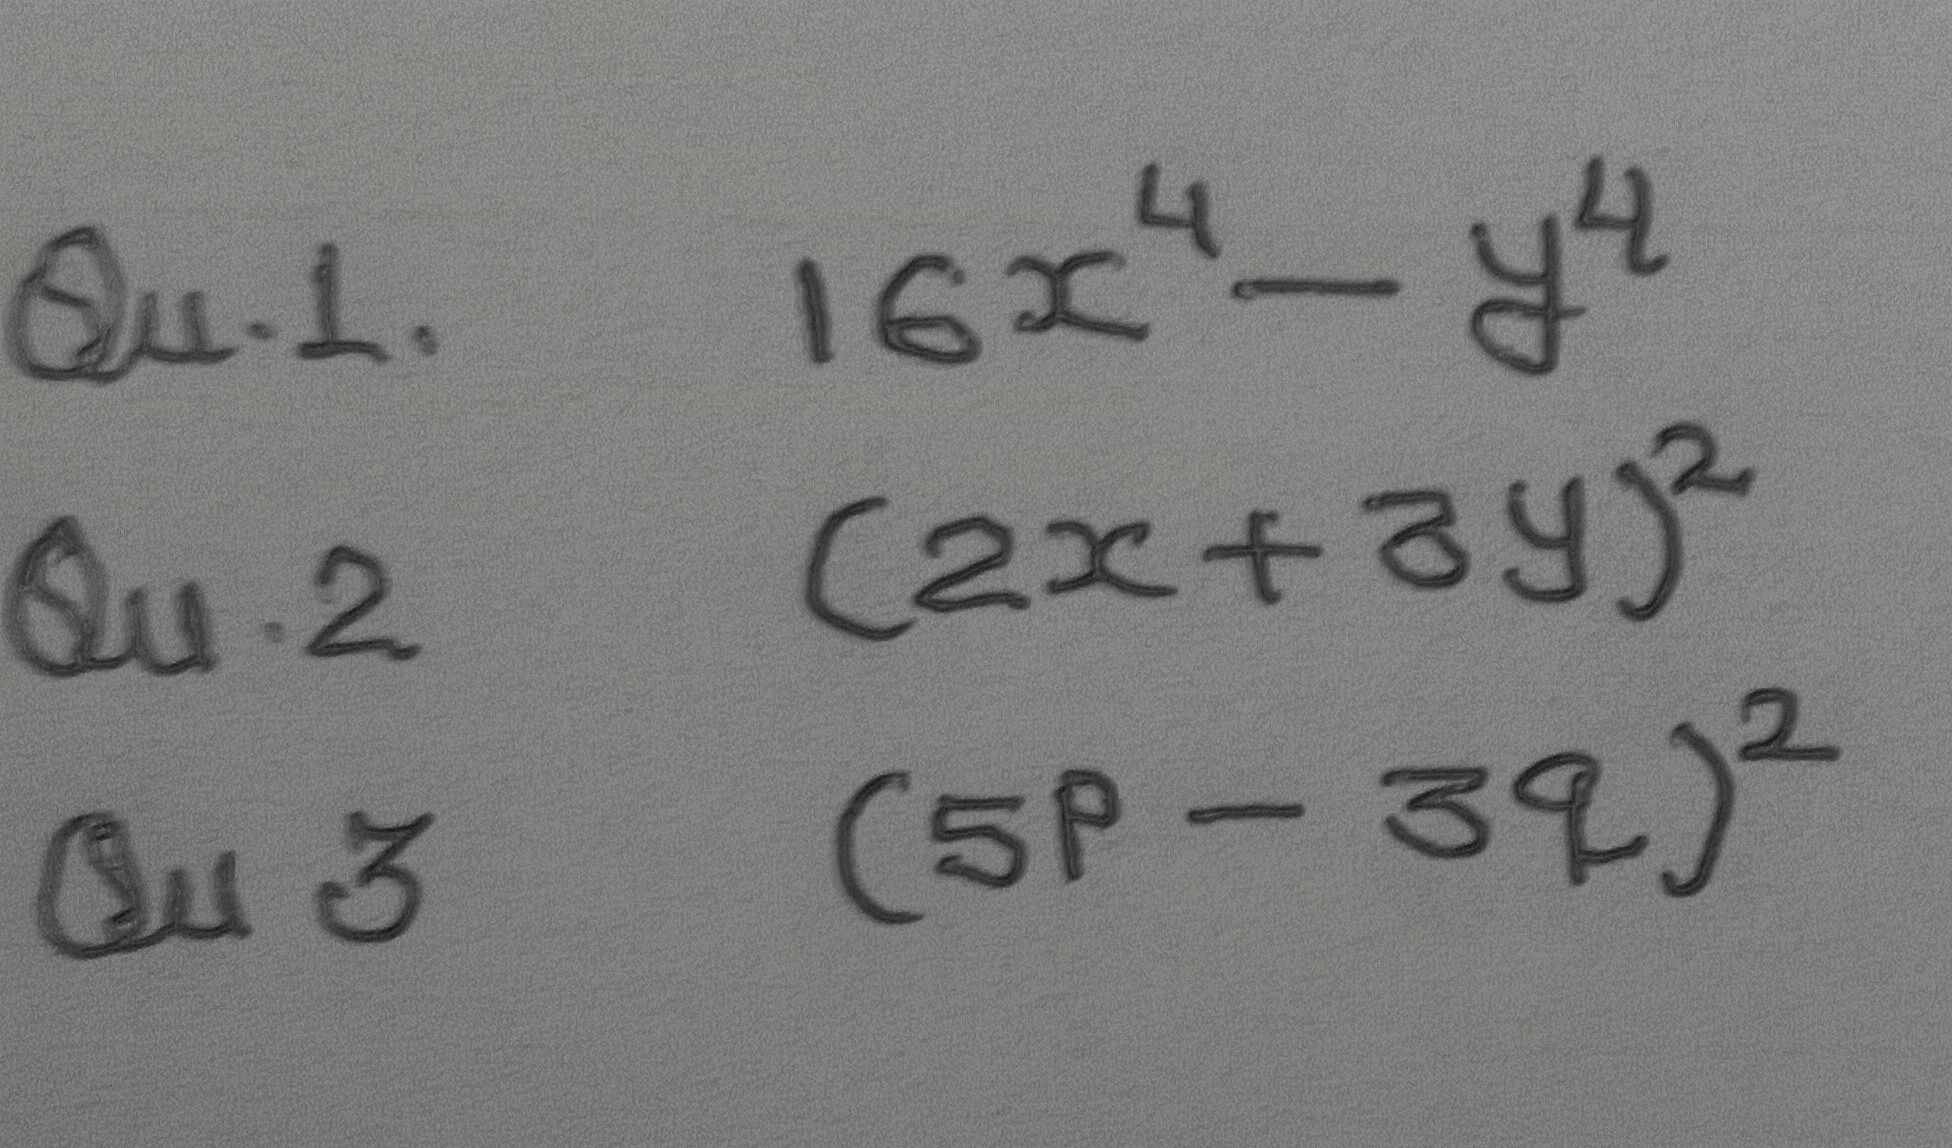 Qu.1. 16x⁴ — y⁴
Qu.2 (2x+3y)²
Qu 3 (5P — 3q)²